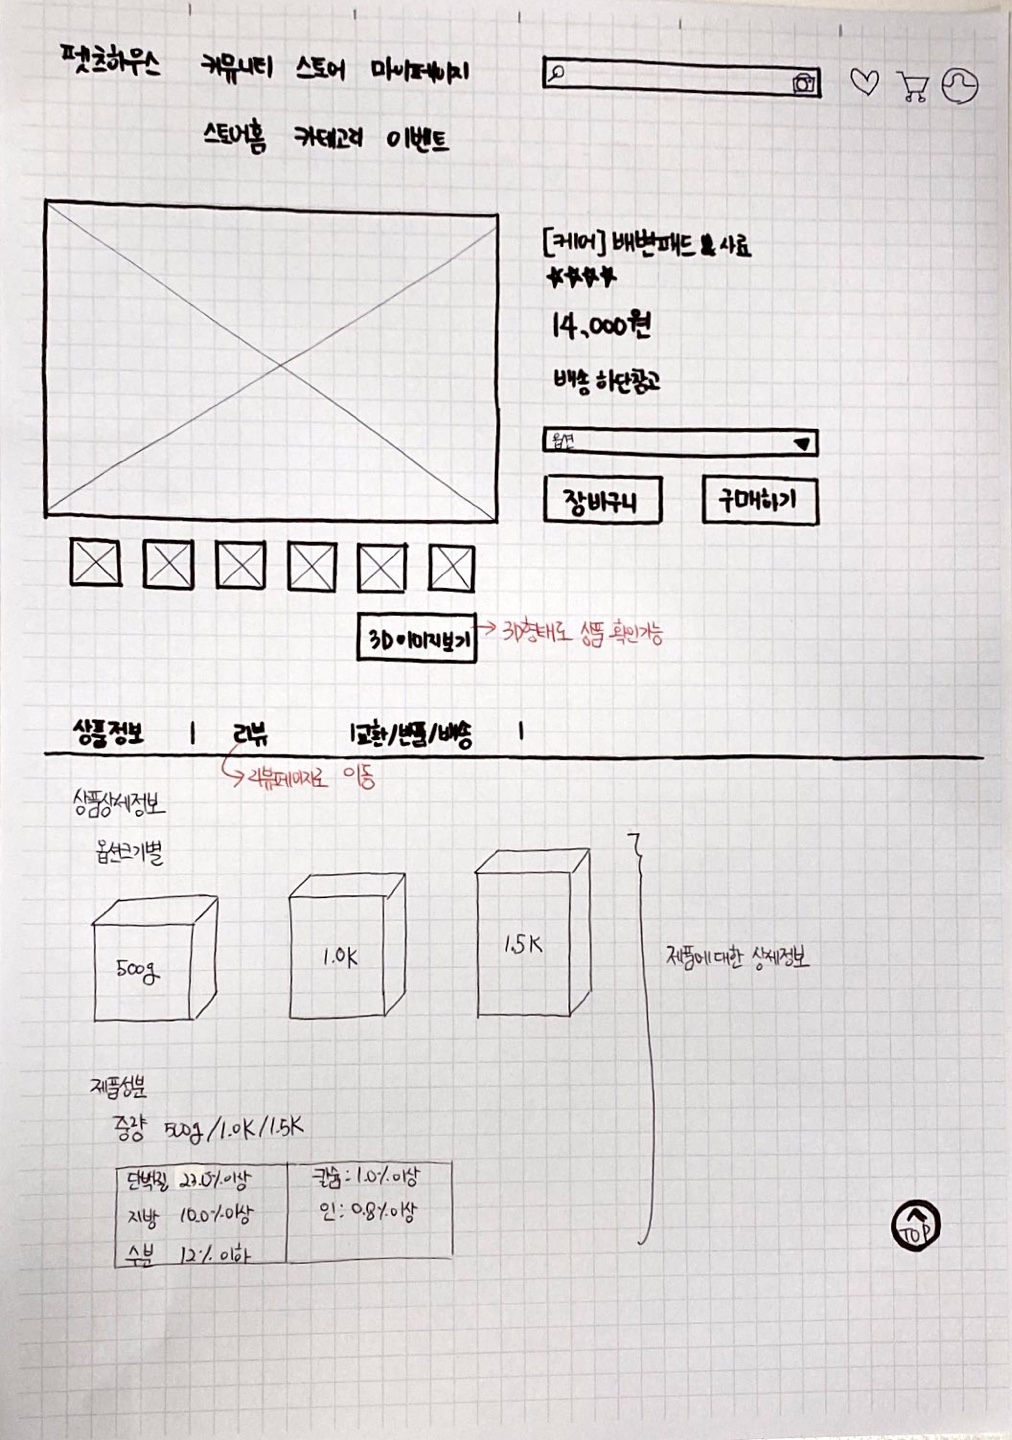 펫츠하우스 커뮤니티 스토어 마이페이지
스토어홈 카테고리 이벤트
[케어] 배변패드 & 사료
14,000원
배송 하단참고
옵션
장바구니 구매하기
3D이미지보기 → 3D형태로 상품 확인가능
상품정보 | 리뷰 |교환/반품/배송 |
리뷰페이지로 이동
상품상세정보
옵션크기별
500g 1.0K 1.5K
제품에대한 상세정보
제품성분
중량 500g/1.0K/1.5K
단백질 27.0%이상 칼슘:1.0%이상
지방 10.0%이상 인:0.8%이상
수분 12% 이하
TOP